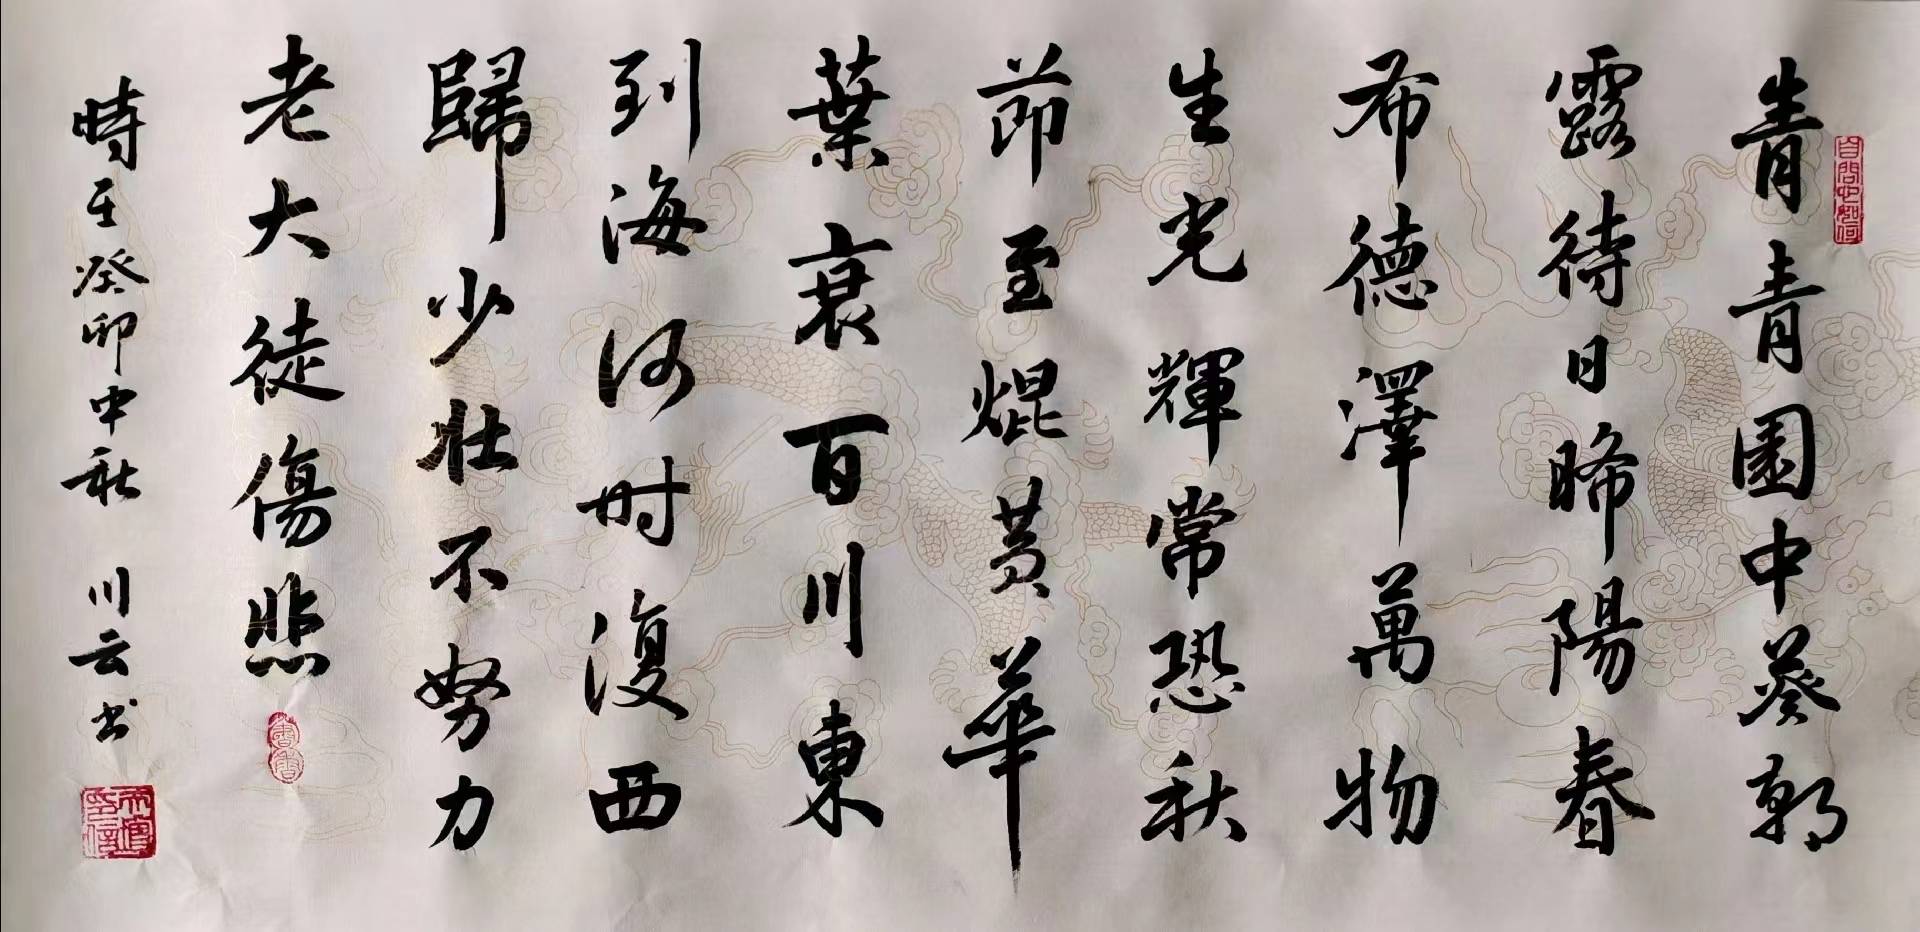 青青園中葵朝
露待日晞陽春
希德澤萬物
生光輝常恐秋
節至焜黃華
葉衰百川東
到海何时復西
歸少壯不努力
老大徒傷悲
時至癸卯中秋 川云书